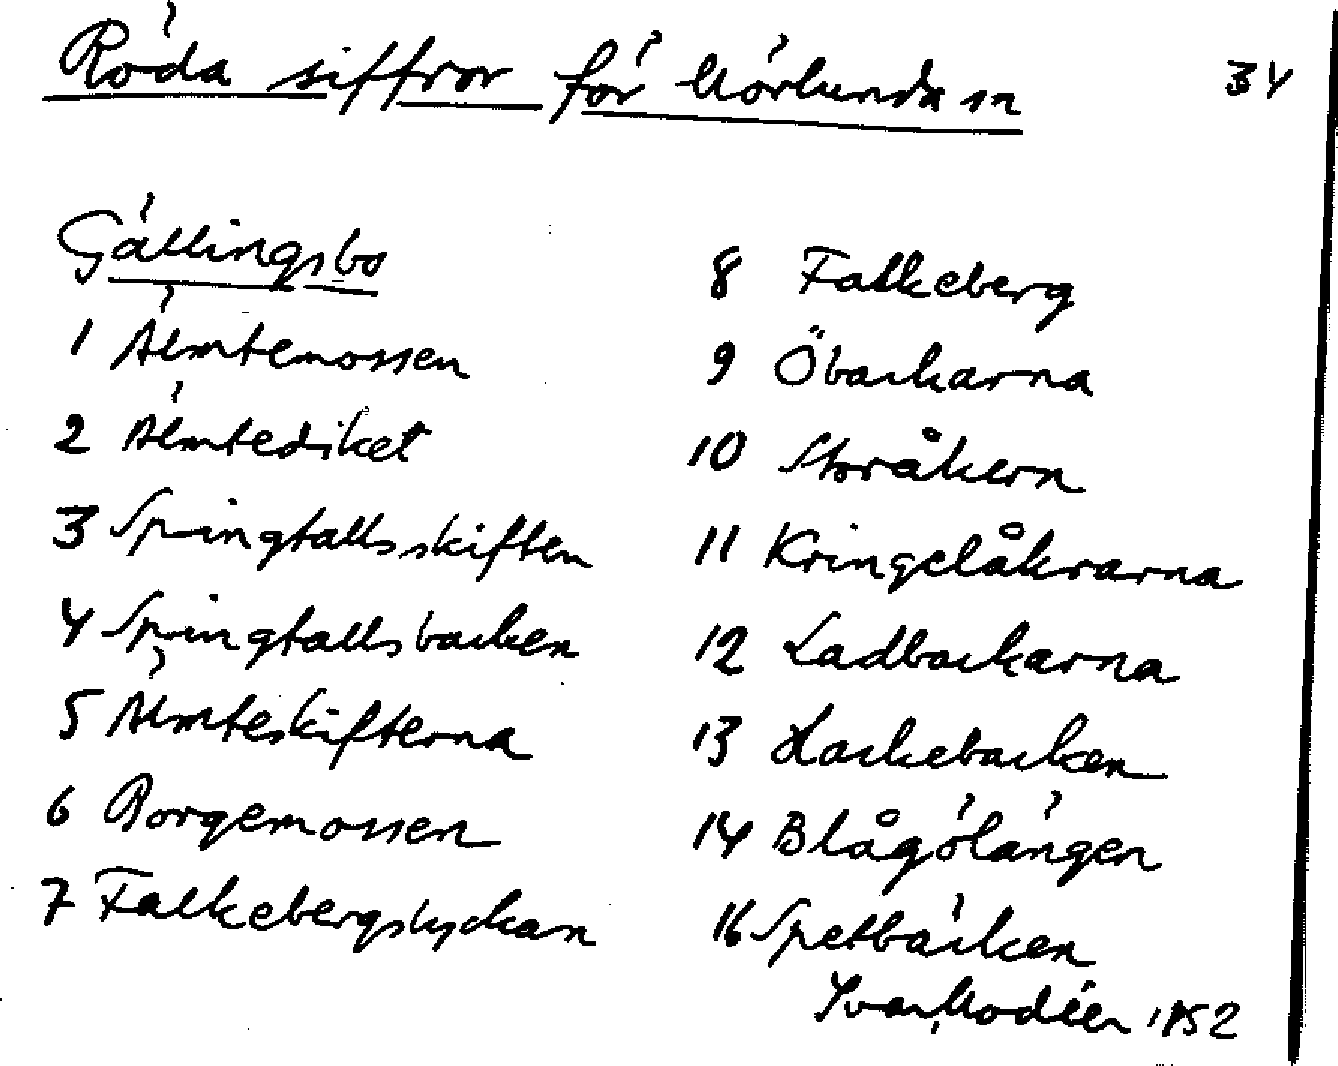 Röda siffror för Mörlunda sn
34
Gällingsbo
1 Älmtemossen
2 Älmtediket
3 Springtallsskiften
4 Springtallsbacken
5 Älmteskifterna
6 Borgemossen
7 Falkebergslyckan
8 Falkeberg
9 Öbackarna
10 Storåkern
11 Kringelåkrarna
12 Ladbackarna
13 Lackebacken
14 Blågölängen
16 Spetbäcken
Ivar Modéer 1952